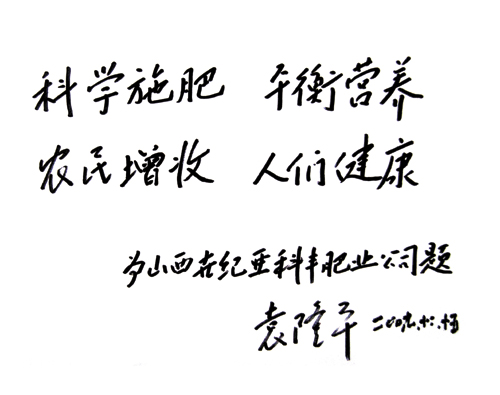 科学施肥 平衡营养
农民增收 人们健康
为山西世纪亚科丰肥业公司题
袁隆平